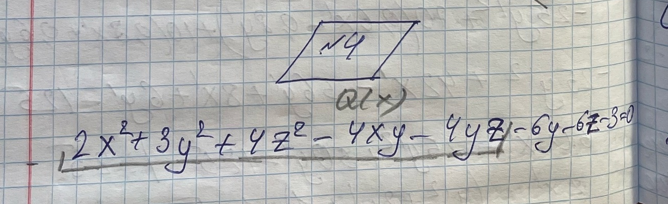 №4
Q(x)
2x² + 3y² + 4z² - 4xy - 4yz - 6y - 6z - 3 = 0